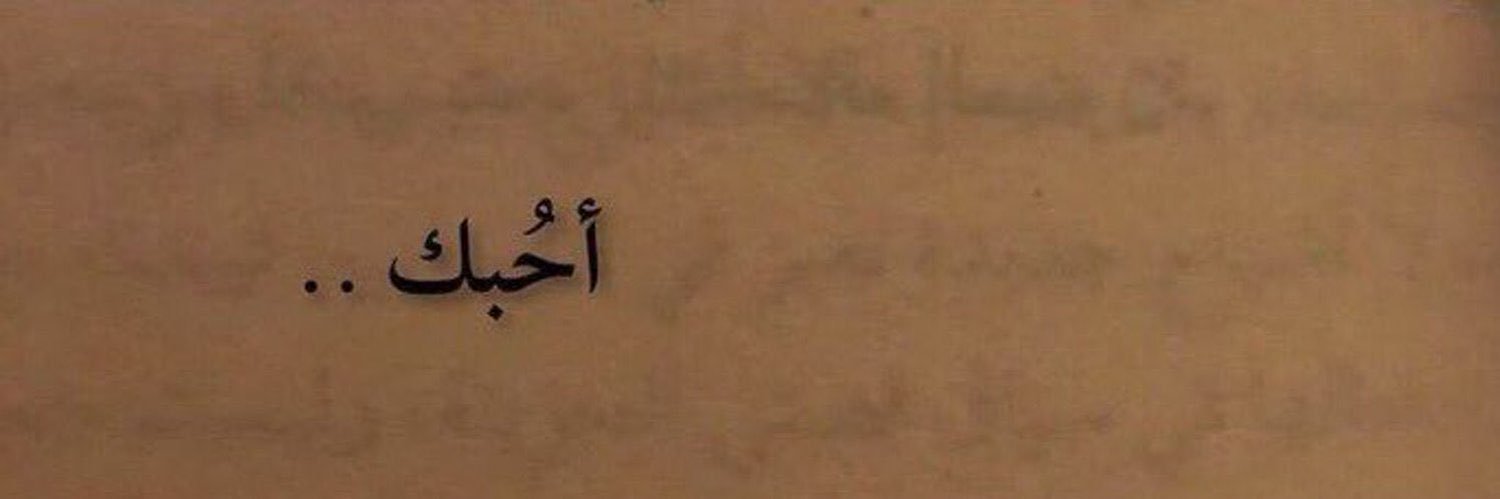 أحُبك ..